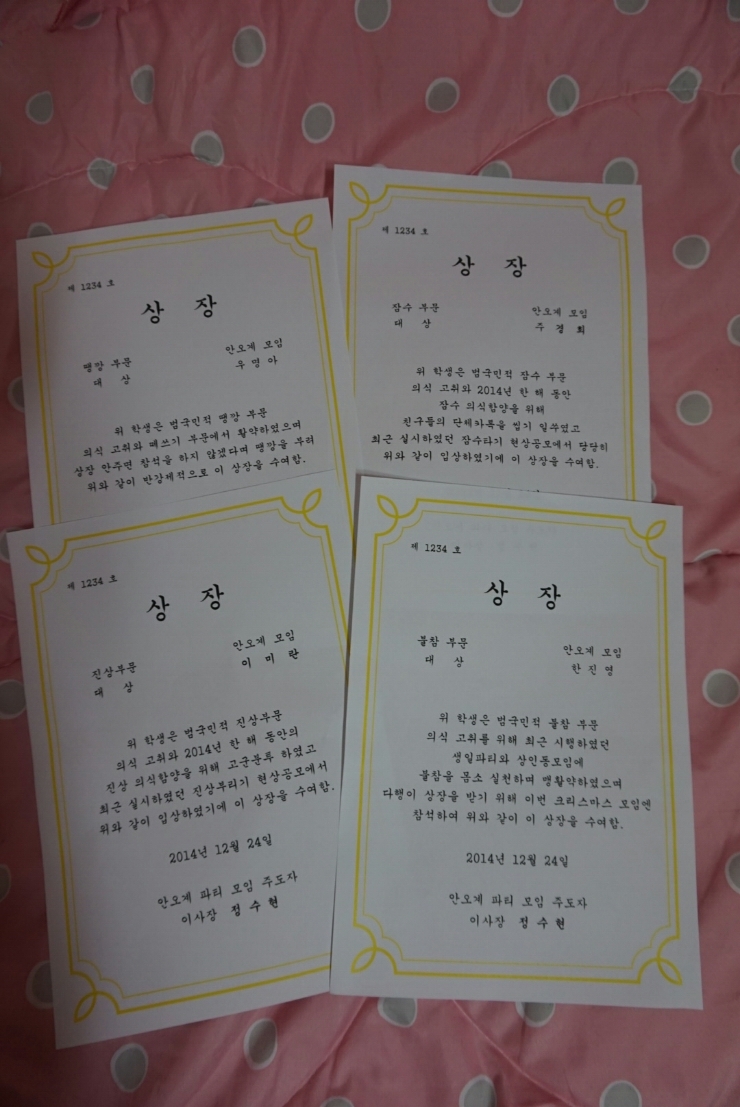 제 1234 호
상 장
땡깡 부문
대 상
안오게 모임
우영아
위 학생은 범국민적 땡깡 부문
의식 고취와 떼쓰기 부문에서 활약하였으며
상장 안주면 참석을 하지 않겠다며 땡깡을 부려
위와 같이 반강제적으로 이 상장을 수여함.
제 1234 호
상 장
잠수 부문
대 상
안오게 모임
주경희
위 학생은 범국민적 잠수 부문
의식 고취와 2014년 한 해 동안
잠수 의식함양을 위해
친구들의 단체카톡을 씹기 일쑤였고
최근 실시하였던 잠수타기 현상공모에서 당당히
위와 같이 입상하였기에 이 상장을 수여함.
제 1234 호
상 장
진상부문
대 상
안오게 모임
이 미 란
위 학생은 범국민적 진상부문
의식 고취와 2014년 한 해 동안의
진상 의식함양을 위해 고군분투 하였고
최근 실시하였던 진상부리기 현상공모에서
위와 같이 입상하였기에 이 상장을 수여함.
2014년 12월 24일
안오게 파티 모임 주도자
이사장 정 수 현
제 1234 호
상 장
불참 부문
대 상
안오게 모임
한 진 영
위 학생은 범국민적 불참 부문
의식 고취를 위해 최근 시행하였던
생일파티와 상인동모임에
불참을 몸소 실천하며 맹활약하였으며
다행이 상장을 받기 위해 이번 크리스마스 모임엔
참석하여 위와 같이 이 상장을 수여함.
2014년 12월 24일
안오게 파티 모임 주도자
이사장 정 수 현